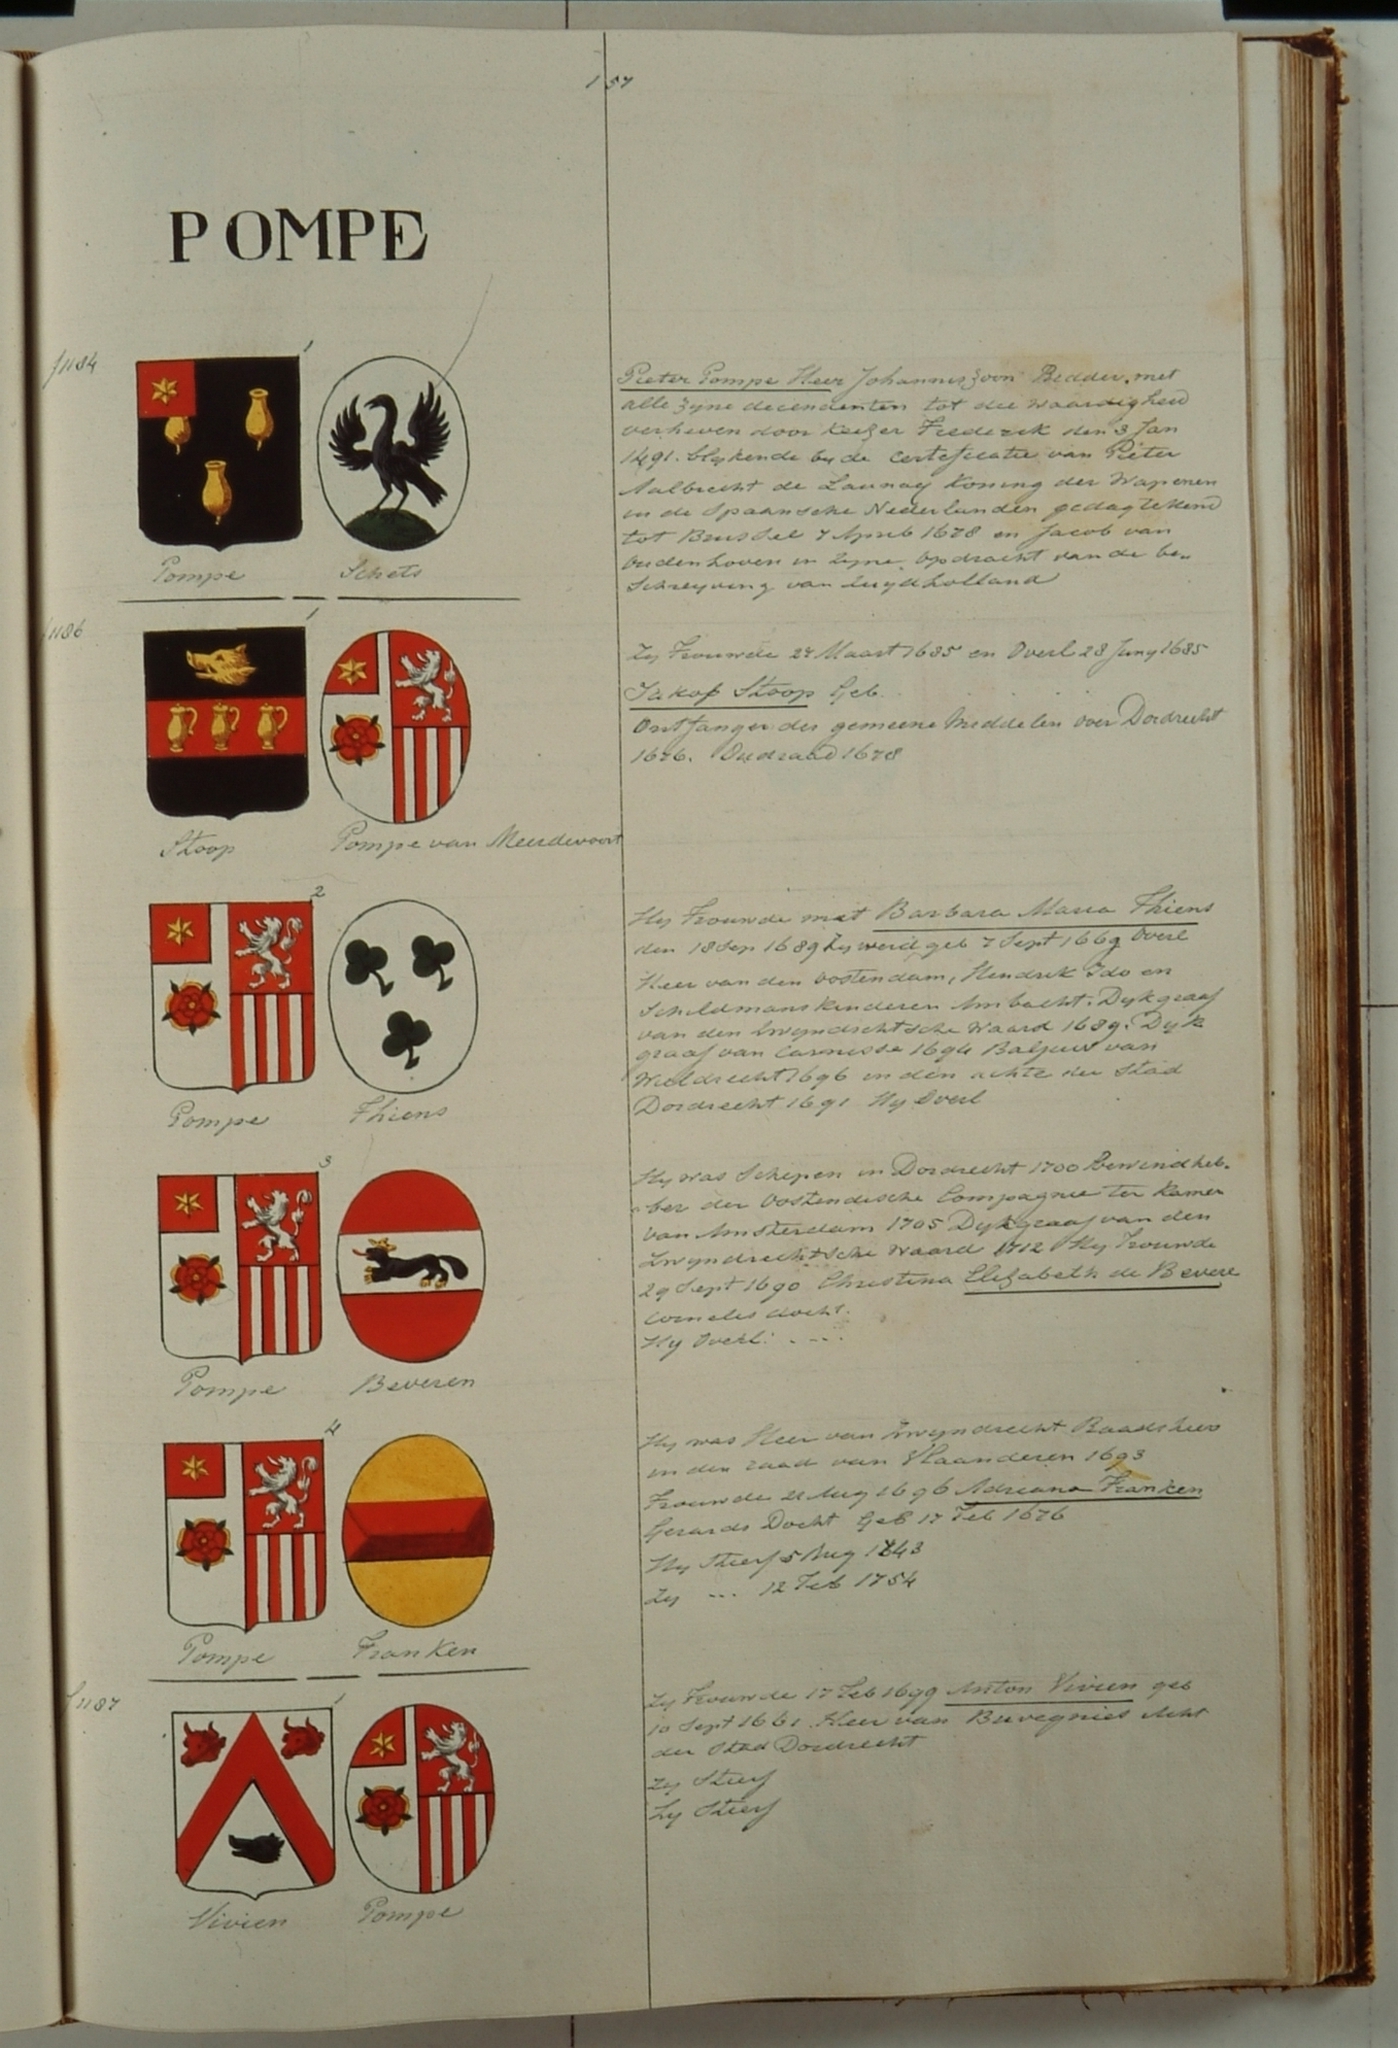 157
POMPE
f 1184
1
Pompe
Schets
Pieter Pompe Heer Johannis zoon Bedder, met
alle zyne decendenten tot die waardigheid
verheven door Keizer Frederik den 3 Jan
1491. blykende by de certificatie van Pieter
Aalbrecht de Launay Koning der Wapenen
in de Spaansche Nederlanden gedagtekend
tot Brussel 7 April 1678 en Jacob van
Oudenhoven in zyne opdracht van de be-
schreyving van Zuydholland
f 1186
1
Stoop
Pompe van Meerdevoort
Zy Trouwde 27 Maart 1685 en Overl 28 Juny 1685
Jakob Stoop Geb.
Ontfanger der gemeene Middelen over Dordrecht
1676. Oudraad 1678
2
Pompe
Thiens
Hy Trouwde met Barbara Maria Thiens
den 18 Sep 1689 Zy werd geb 7 Sept 1669 Overl
Heer van den Oostendam, Hendrik Ido en
Schildmanskinderen Ambacht. Dykgraaf
van den Zwyndrechtsche Waard 1689. Dyk
graaf van Carnisse 1694 Baljuw van
Wieldrecht 1696 in den achte der Stad
Dordrecht 1691 Hy Overl
3
Pompe
Beveren
Hy was Schepen in Dordrecht 1700 Bewindheb-
ber der Oostendische Compagnie ter Kamer
van Amsterdam 1705 Dykgraaf van den
Zwyndrechtsche Waard 1712 Hy Trouwde
29 Sept 1690 Christina Elizabeth de Bevere
Cornelis docht.
Hy Overl: . - - .
4
Pompe
Franken
Hy was Heer van Zwyndrecht Raadsheer
in den raad van Vlaanderen 1693
Trouwde 21 Aug 1696 Adriana Franken
Gerards Docht Geb 17 Feb 1676
Hy Stierf 5 Aug 1743
Zy --- 12 Feb 1754
f 1187
1
Vivien
Pompe
Zy Trouwde 17 Feb 1699 Anton Vivien geb
10 Sept 1661 Heer van Buvegnies Acht
der Stad Dordrecht
Zy Stierf
Hy Stierf